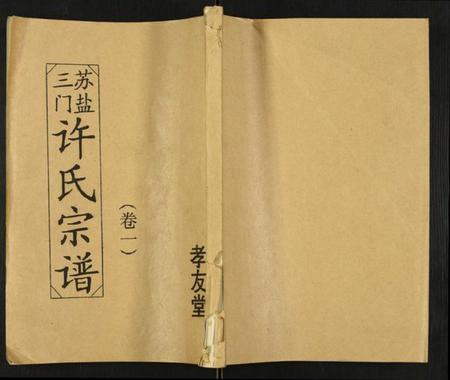 苏盐
三门
许氏宗谱
(卷一)
孝友堂